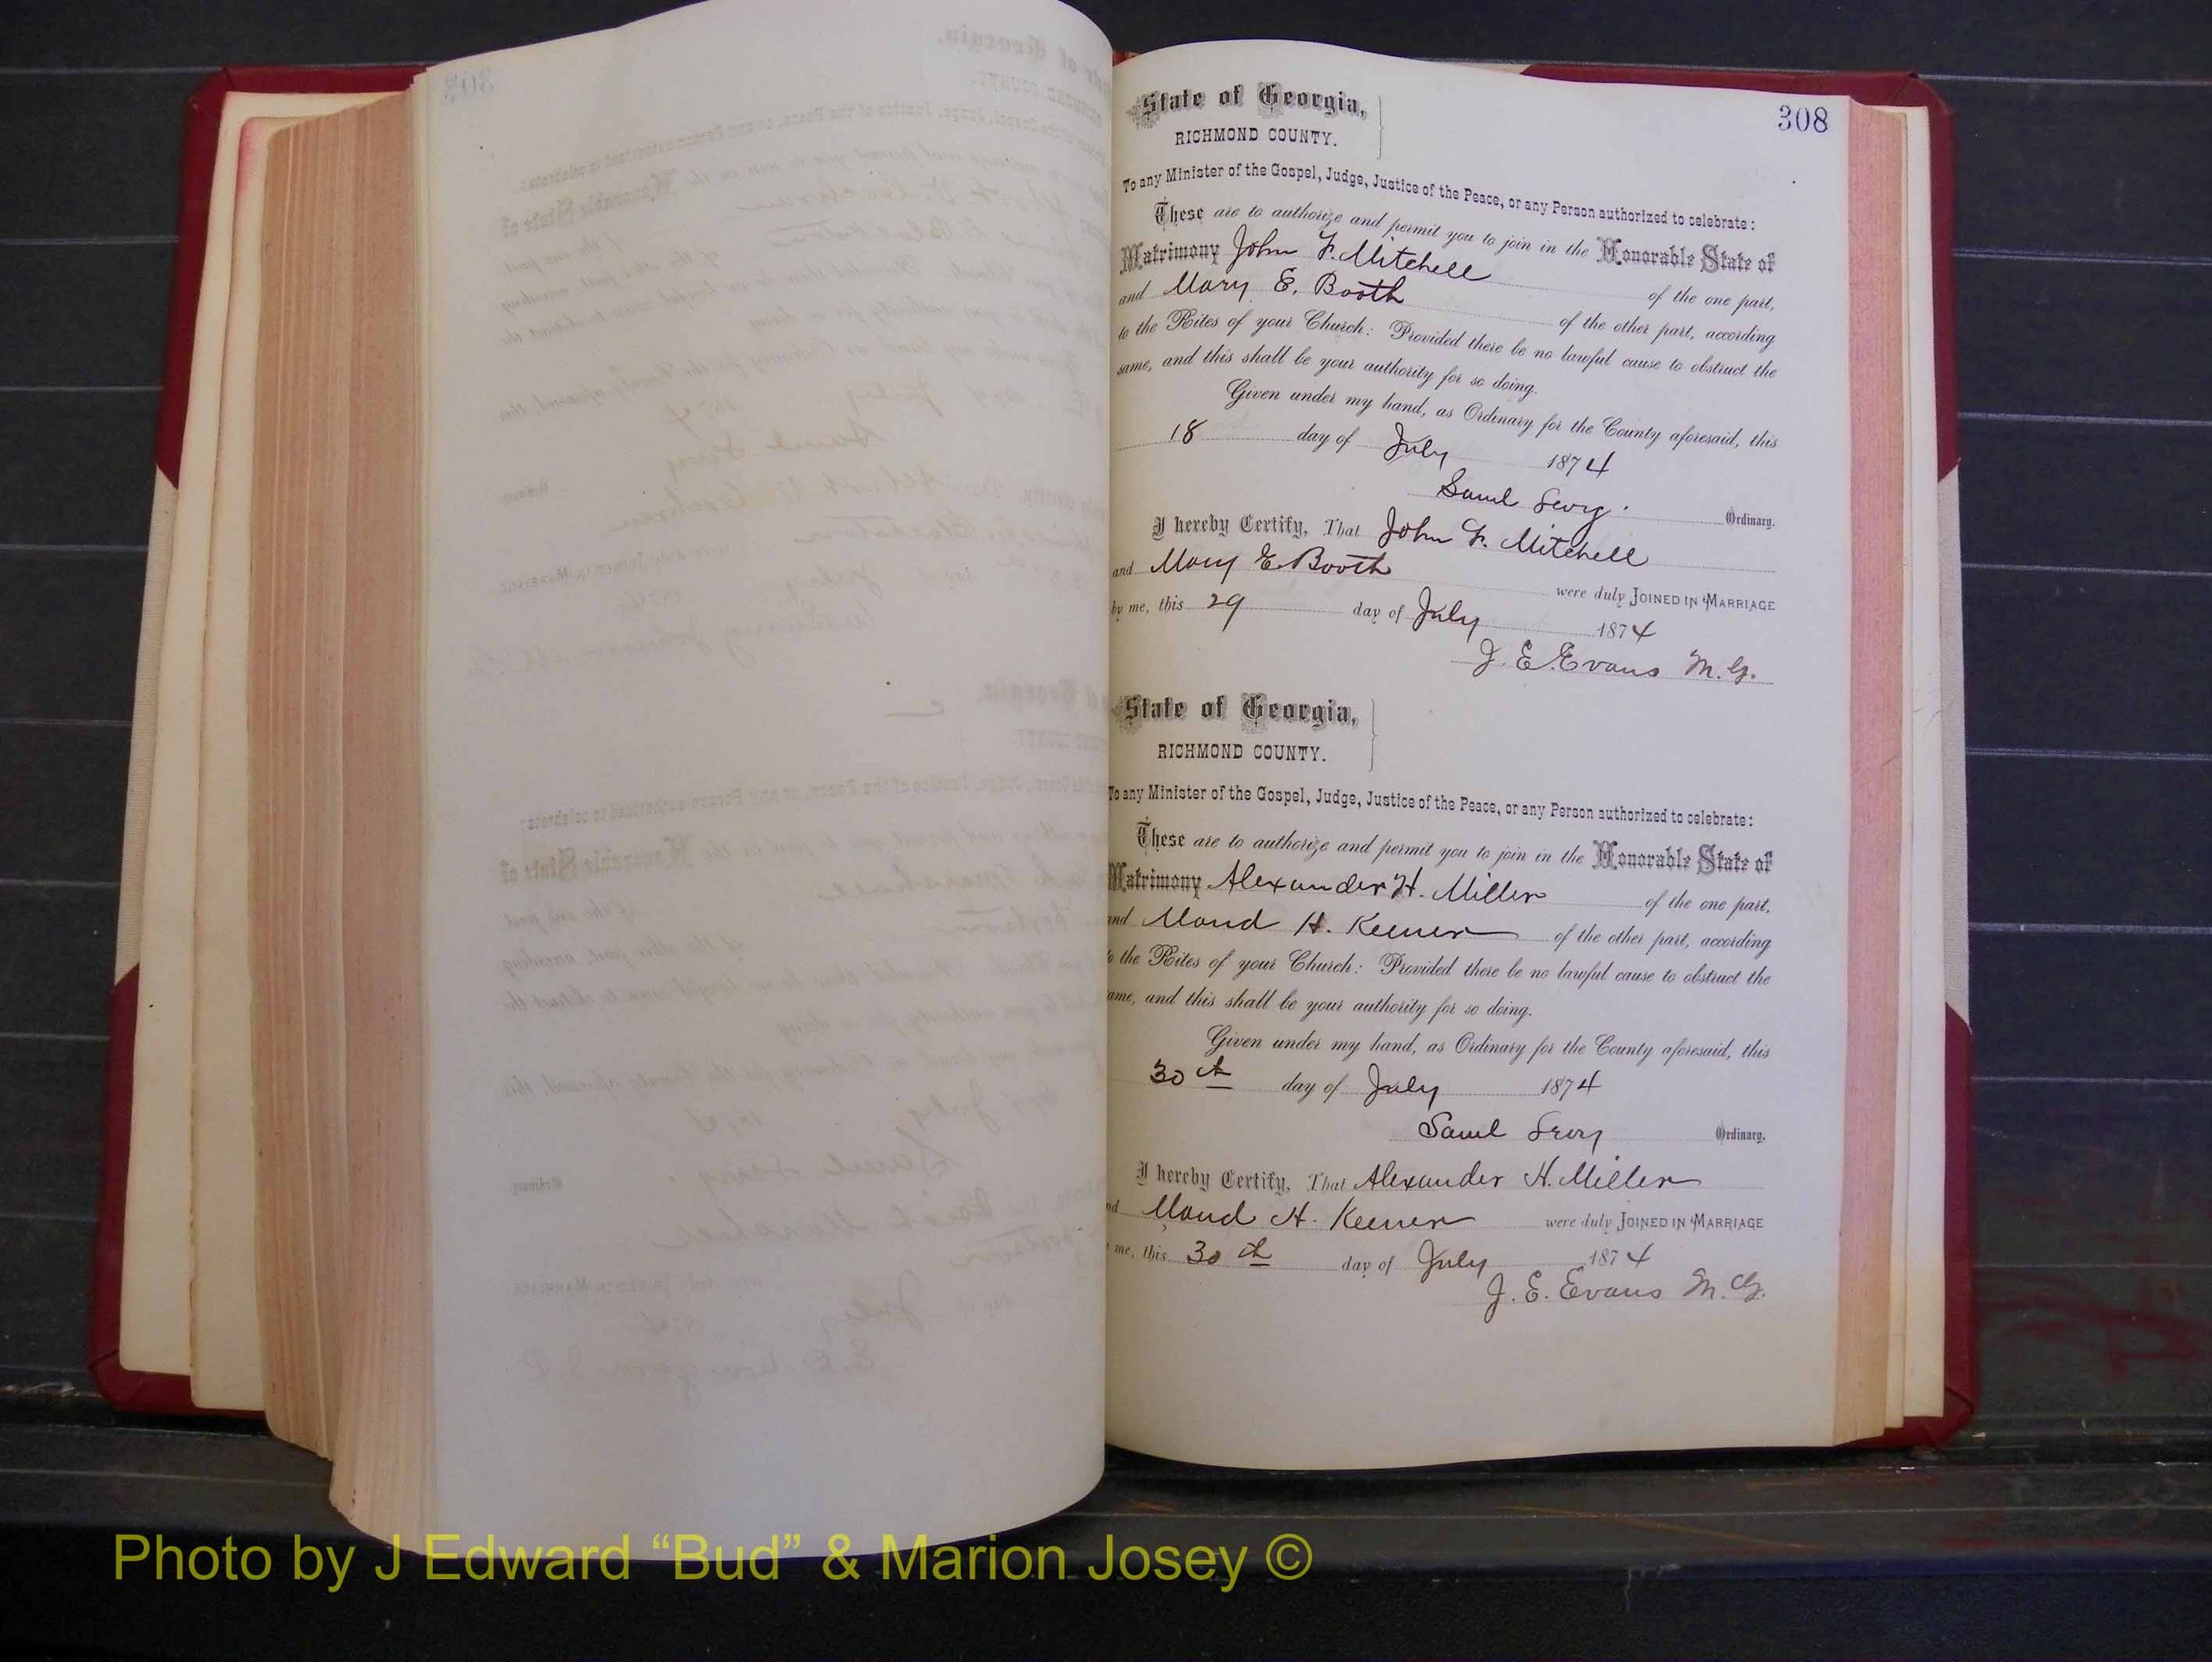 308
State of Georgia,
RICHMOND COUNTY.
To any Minister of the Gospel, Judge, Justice of the Peace, or any Person authorized to celebrate:
These are to authorize and permit you to join in the Honorable State of
Matrimony John F. Mitchell of the one part,
and Mary E. Booth of the other part, according
to the Rites of your Church: Provided there be no lawful cause to obstruct the
same, and this shall be your authority for so doing.
Given under my hand, as Ordinary for the County aforesaid, this
18 day of July 1874
Saml Levy. Ordinary.
I hereby Certify, That John F. Mitchell
and Mary E Booth were duly JOINED IN MARRIAGE
by me, this 29 day of July 1874
J. E. Evans M. G.
State of Georgia,
RICHMOND COUNTY.
To any Minister of the Gospel, Judge, Justice of the Peace, or any Person authorized to celebrate:
These are to authorize and permit you to join in the Honorable State of
Matrimony Alexander H. Miller of the one part,
and Maud H. Keener of the other part, according
to the Rites of your Church: Provided there be no lawful cause to obstruct the
ame, and this shall be your authority for so doing.
Given under my hand, as Ordinary for the County aforesaid, this
30th day of July 1874
Saml Levy Ordinary.
I hereby Certify, That Alexander H. Miller
nd Maud H. Keener were duly JOINED IN MARRIAGE
me, this 30th day of July 1874
J. E. Evans M. G.
Photo by J Edward “Bud” & Marion Josey ©